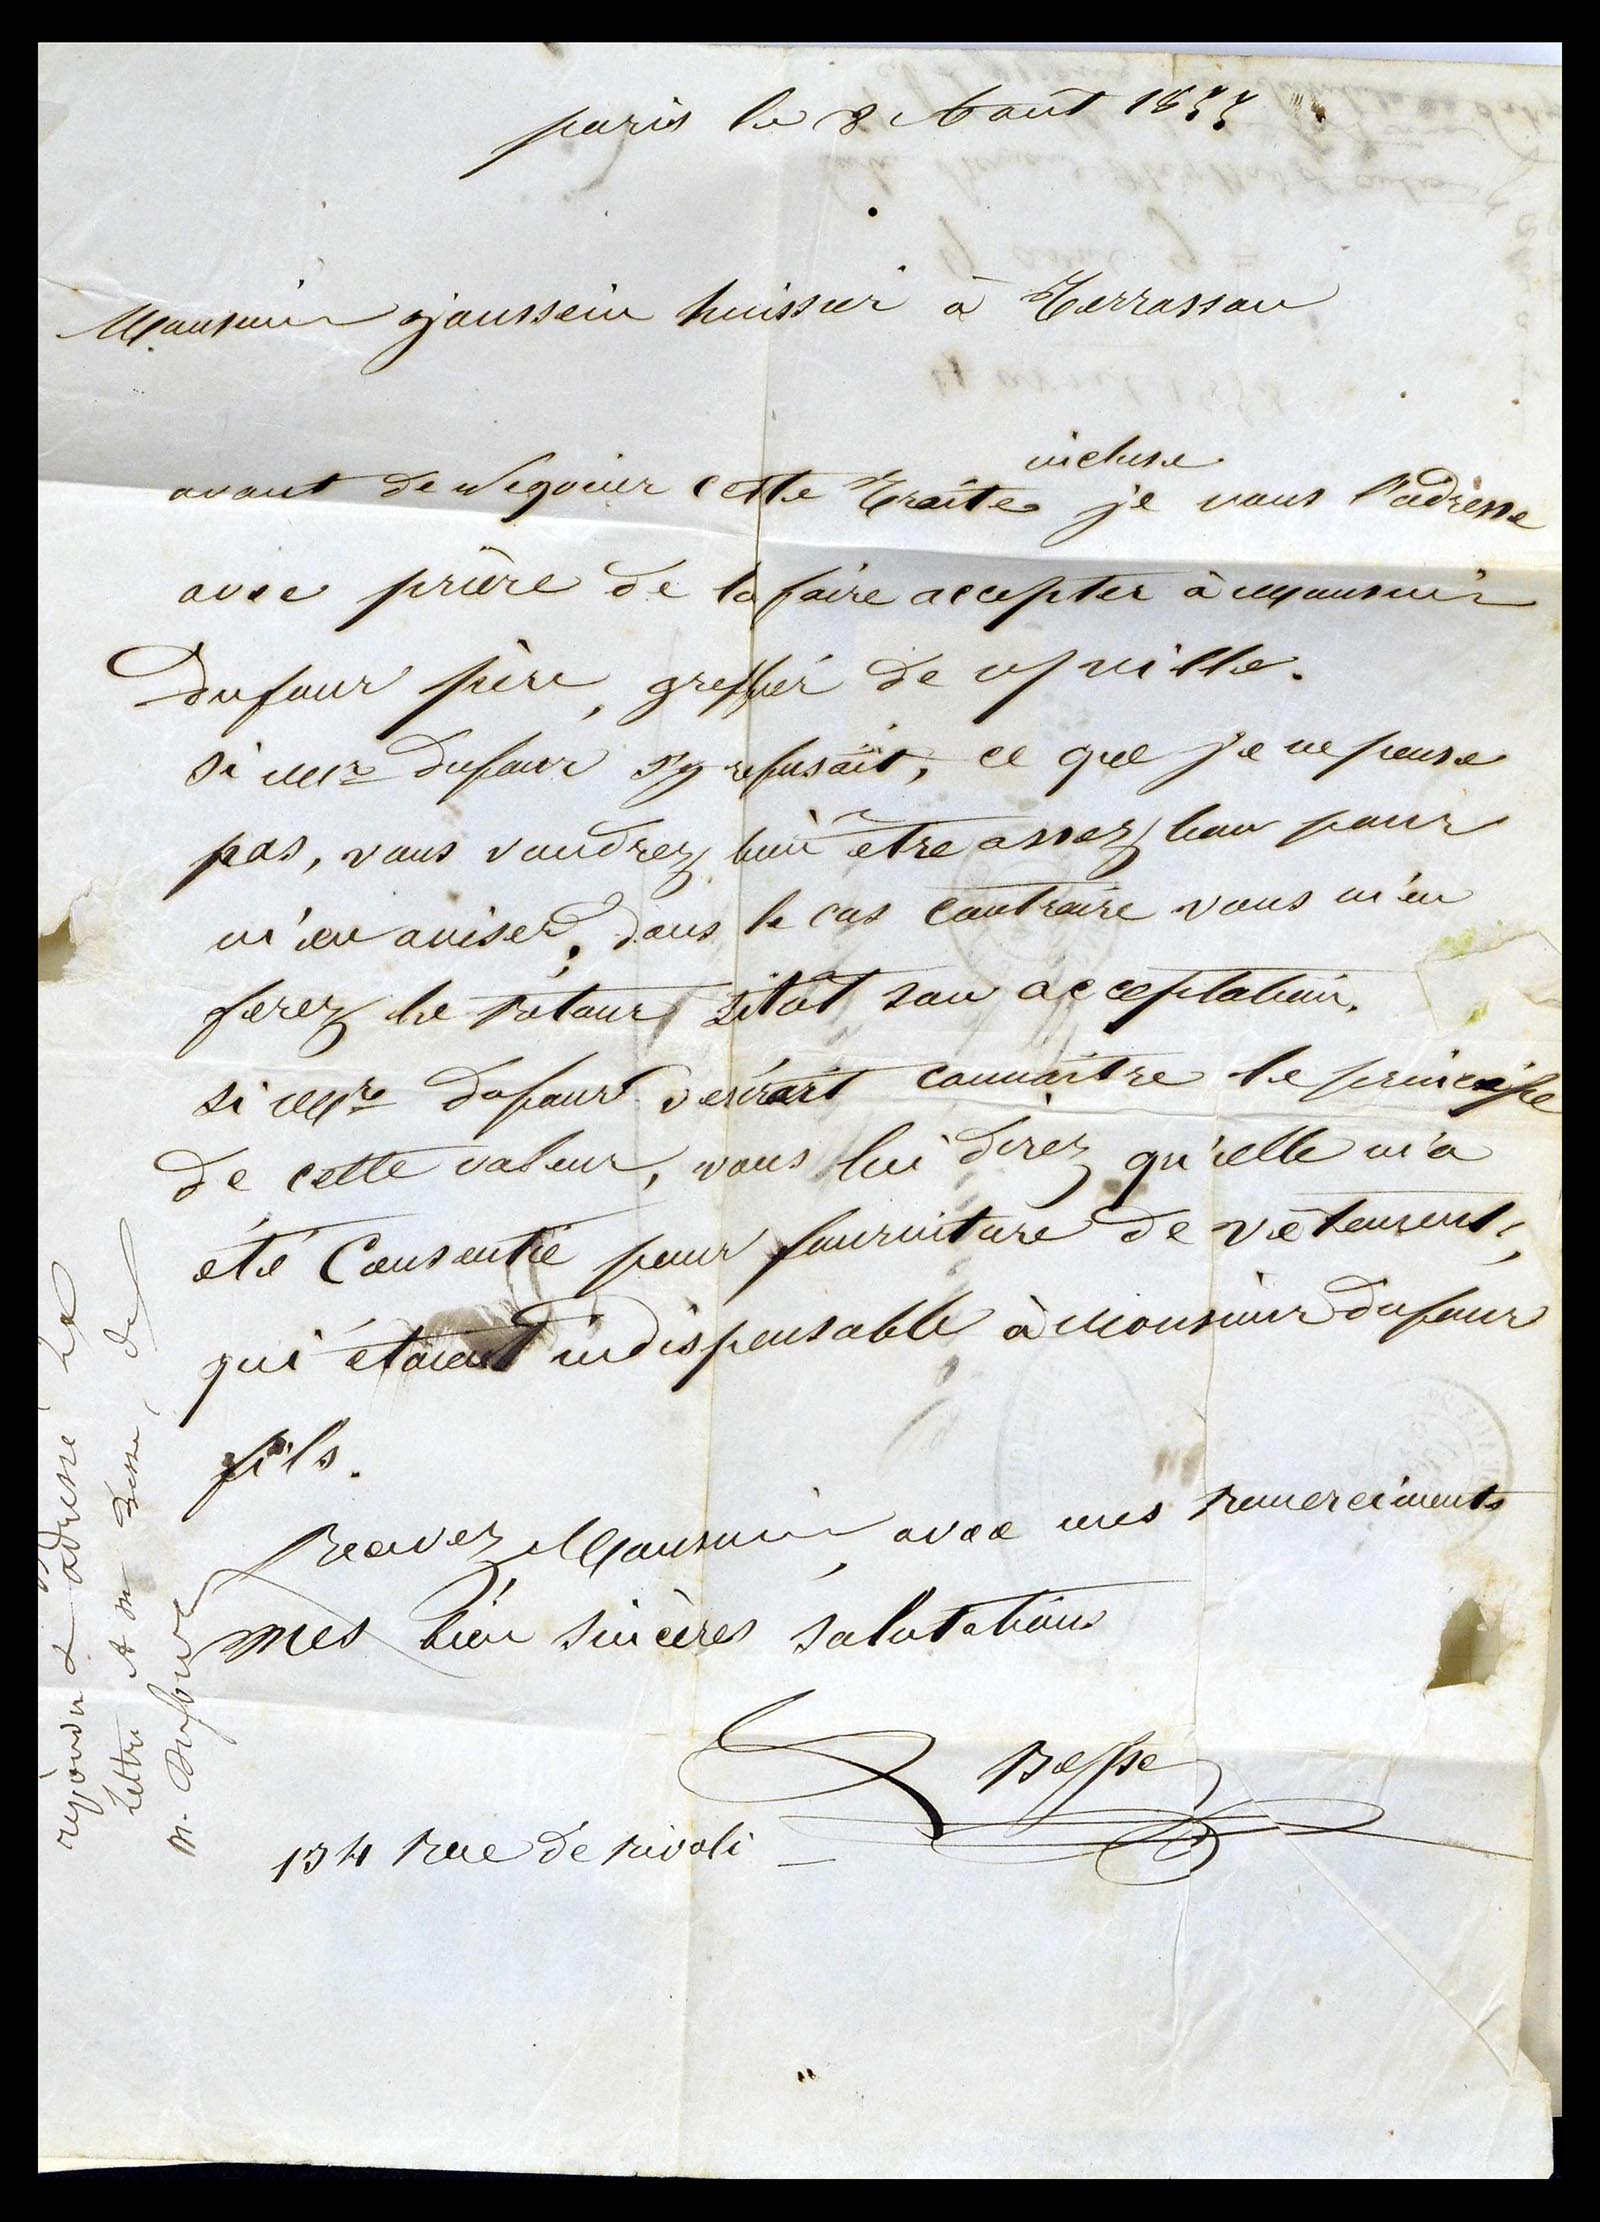 paris le 8 Aout 1855
Monsieur jaussein huissier à Terrasson
incluse
avant de Negocier cette Traite je vous l'adresse
avec prière de la faire accepter à Monsieur
Dufour père, greffier de v/ ville.
si Mr dufour s'y refusait, ce que je ne pense
pas, vous voudrez bien etre assez bon pour
m'en aviser, dans le cas contraire vous m'en
ferez le retour sitôt son acceptation.
si Mr dufour desirait connaitre le principe
de cette valeur, vous lui direz qu'elle m'a
été Consentie pour fourniture de vêtements,
qui étaient indispensable à Monsieur dufour
fils.
Recevez Monsieur, avec mes remerciments
mes bien sincères salutations
Besse
134 Rue de rivoli
repondu & adressé la
lettre A m Besse, de
M. Dufour